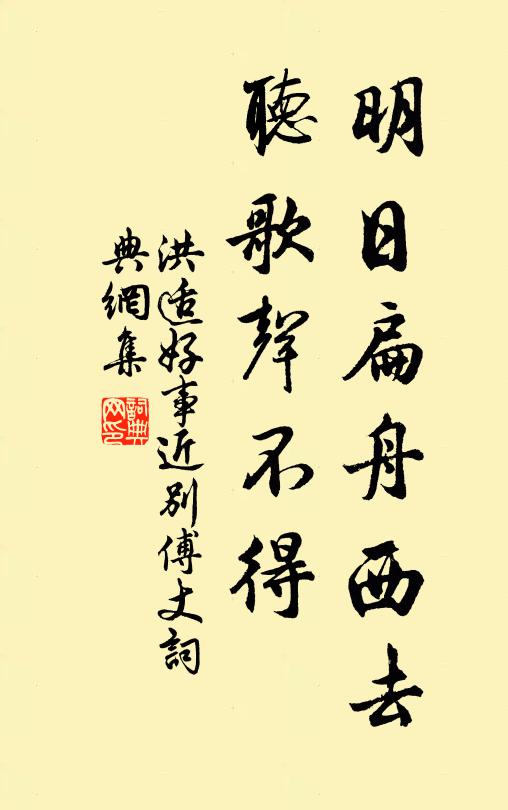 明日扁舟西去
聽歌聲不得
洪适好事近別傅丈詞
典網集
詞典
网印